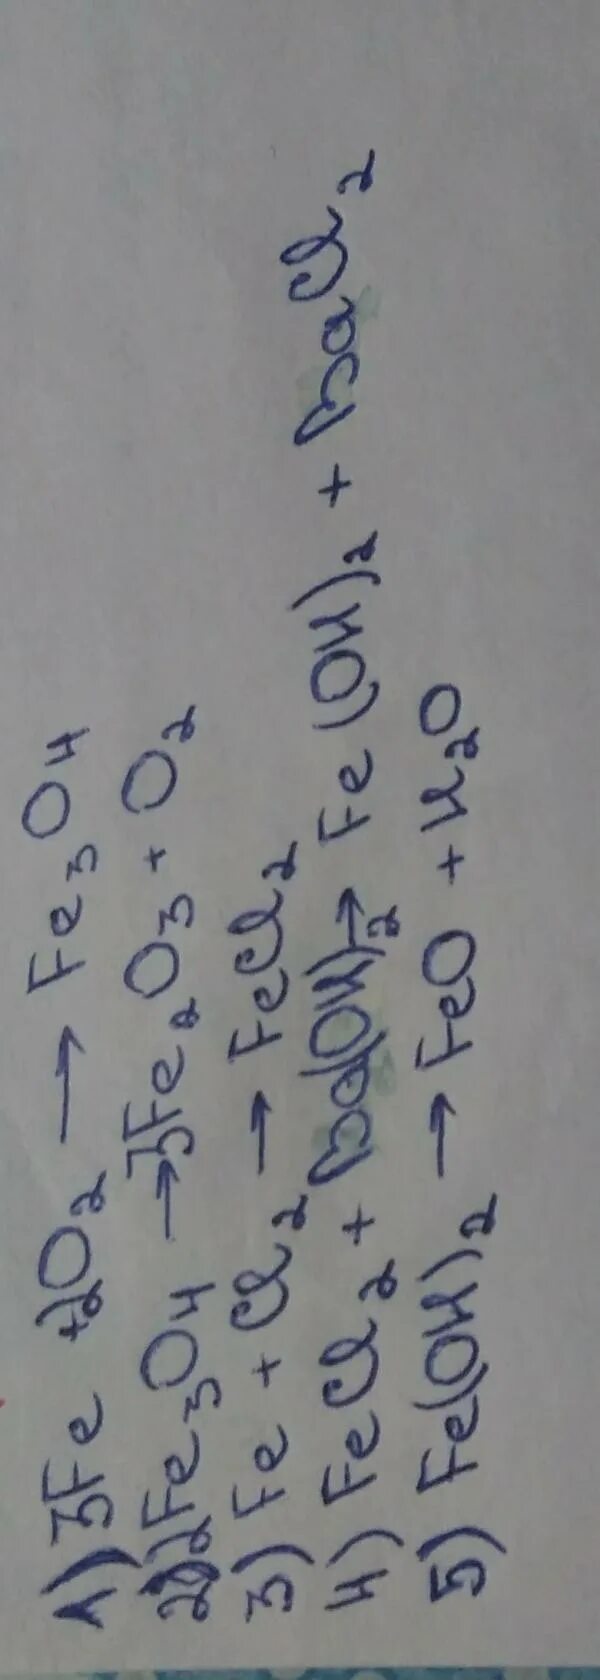 1) 3Fe + 2O₂ → Fe₃O₄
2) 2Fe₃O₄ → 3Fe₂O₃ + O₂
3) Fe + Cl₂ → FeCl₂
4) FeCl₂ + Ba(OH)₂ → Fe(OH)₂ + BaCl₂
5) Fe(OH)₂ → FeO + H₂O